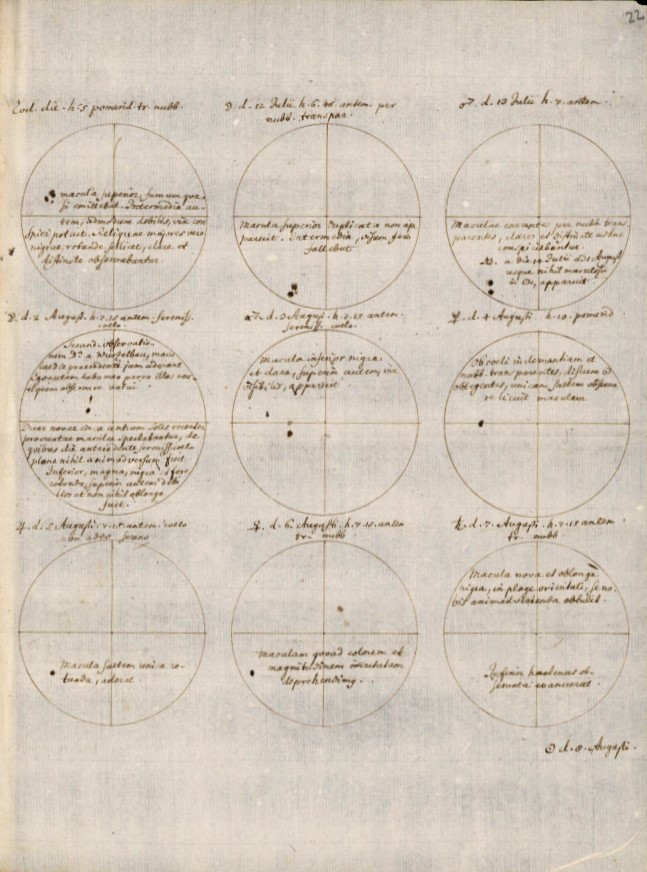 22
Eod. die. h. 5 pomerid. tr. nubb.
macula superior, fumum qua
si emittebat. Intermedia au-
tem, admodum debilis, vix con
spici potuit. Reliquae majores vero
nigrae, rotundae scilicet, clare et
distincte observabantur.
☽ d. 12 Julii h. 6. 45 antem. per
nubb. transpar.
Macula superior duplicata non ap
paruit. Intermedia, visum fere
fallebat
♂ d. 13 Julii h. 7. antem.
Maculae exceptae per nubb. trans
parentes, clares et distinctae
conspiciebantur.
NB. a die 14 Julii ad 1 August
usque nihil macularum
in ☉, apparuit.
☽. d. 2 August. h. 7. 15 antem. sereniss.
coelo.
Secund. observatio
nem Dn. a Wurzelbau, macu
lae
Duae novae circa centrum Solis recenter
proventae maculae spectabantur, de
quibus die antecedente serenissimo coelo
plane nihil animadversum fuit
Inferior, magna, nigra et fere
rotunda, superior autem debi
lior et non nihil oblonga
fuit.
♂ d. 3 August. h. 7. 15. antem.
sereniss. coelo.
Macula inferior nigra
et clara, superior autem, vix
visibilis, apparuit
☿. d. 4 Augusti. h. 10. pomerid
Ob coeli inclementiam et
nubb. transparentes, discum ☉
obtegentes, unicam saltem observa
re licuit maculam.
♃. d. 5 Augusti. 7. 15. antem. coelo
non adeo sereno
Macula saltem unica ro-
tunda, aderat.
♀. d. 6 Augusti. h. 7. 15. antem
tr. nubb
Maculam quoad colorem et
magnitudinem immutatam
deprehendimq.
♄. d. 7. Augusti. h. 7. 15 antem
tr. nubb
Macula nova et oblonga
nigra, in plaga orientali, se no-
bis animadvertenda obtulit.
Inferior hactenus ob-
servata evanuerat.
☉ d. 8. Augusti.